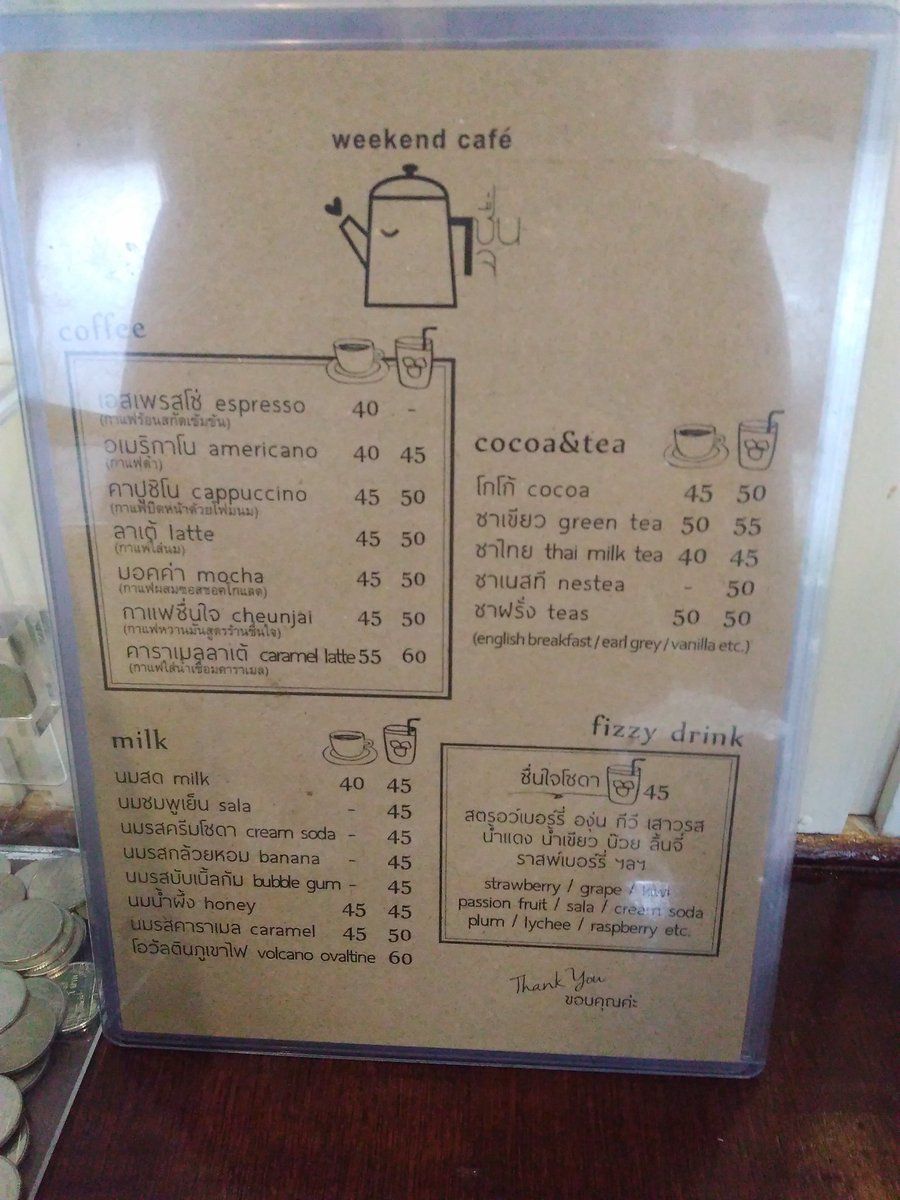 weekend café
ชื่น
ใจ
coffee
เอสเพรสโซ่ espresso 40 -
(กาแฟร้อนสกัดเข้มข้น)
อเมริกาโน americano 40 45
(กาแฟดำ)
คาปูชิโน cappuccino 45 50
(กาแฟปิดหน้าด้วยโฟมนม)
ลาเต้ latte 45 50
(กาแฟใส่นม)
มอคค่า mocha 45 50
(กาแฟผสมซอสชอคโกแลต)
กาแฟชื่นใจ cheunjai 45 50
(กาแฟหวานมันสูตรร้านชื่นใจ)
คาราเมลลาเต้ caramel latte 55 60
(กาแฟใส่น้ำเชื่อมคาราเมล)
cocoa&tea
โกโก้ cocoa 45 50
ชาเขียว green tea 50 55
ชาไทย thai milk tea 40 45
ชาเนสที nestea - 50
ชาฝรั่ง teas 50 50
(english breakfast / earl grey / vanilla etc.)
milk
นมสด milk 40 45
นมชมพูเย็น sala - 45
นมรสครีมโซดา cream soda - 45
นมรสกล้วยหอม banana - 45
นมรสบับเบิ้ลกัม bubble gum - 45
นมน้ำผึ้ง honey 45 45
นมรสคาราเมล caramel 45 50
โอวัลตินภูเขาไฟ volcano ovaltine 60
fizzy drink
ชื่นใจโซดา 45
สตรอว์เบอร์รี่ องุ่น กีวี เสาวรส
น้ำแดง น้ำเขียว บ๊วย ลิ้นจี่
ราสพ์เบอร์รี่ ฯลฯ
strawberry / grape / kiwi
passion fruit / sala / cream soda
plum / lychee / raspberry etc.
Thank You
ขอบคุณค่ะ